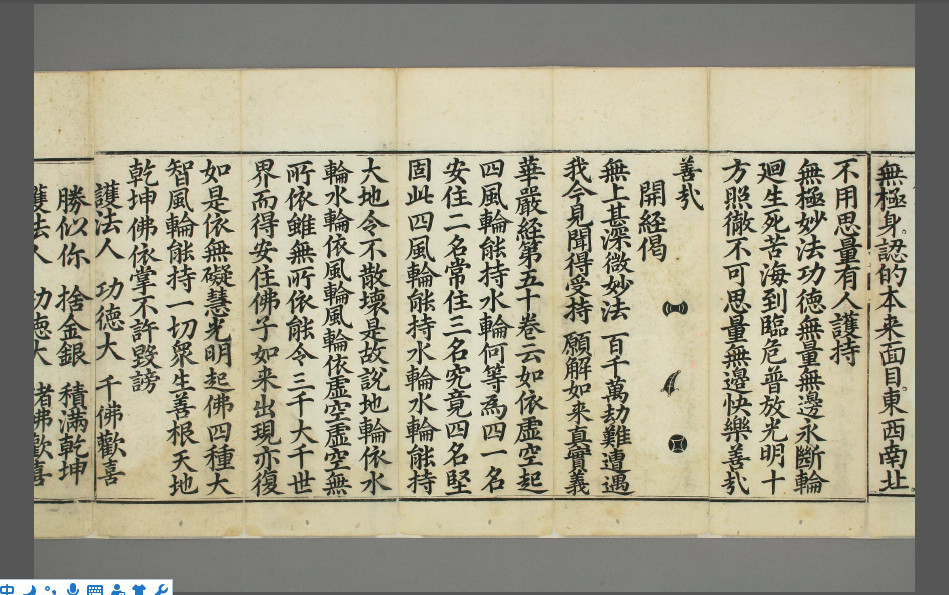 無極身認的本来面目東西南北
不用思量有人護持
無極妙法功徳無量無邊永斷輪
廻生死苦海到臨危普放光明十
方照徹不可思量無邊快樂善㢤
善㢤
開経偈
無上甚深微妙法 百千萬劫難遭遇
我今見聞得受持 願解如来真實義
華嚴経第五十卷云如依虛空起
四風輪能持水輪何等為四一名
安住二名常住三名究竟四名堅
固此四風輪能持水輪水輪能持
大地令不散壞是故說地輪依水
輪水輪依風輪風輪依虛空虛空無
所依雖無所依能令三千大千世
界而得安住佛子如来出現亦復
如是依無礙慧光明起佛四種大
智風輪能持一切衆生善根天地
乾坤佛依掌不許毀謗
護法人 功徳大 千佛歡喜
勝似你 捨金銀 積滿乾坤
護法人 功徳大 諸佛歡喜
中